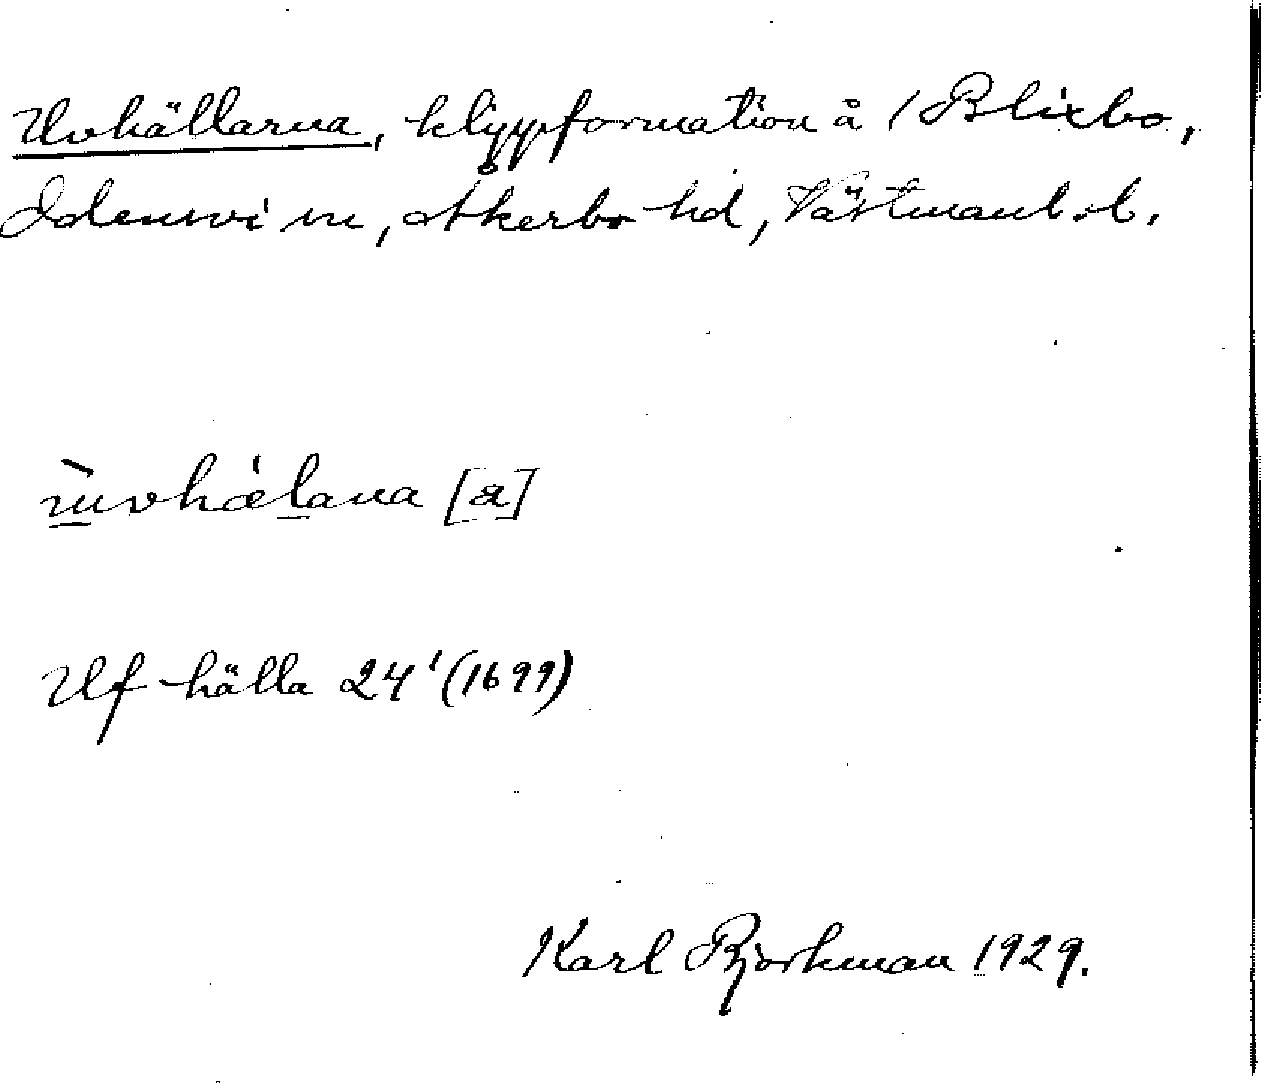 Uvhällarna, klippformation å 1 Blixbo,
Odensvi sn, Åkerbo hd, Västmanl. l.
ùvhælana [a]
Uf hälla 24' (1699)
Karl Björkman 1929.